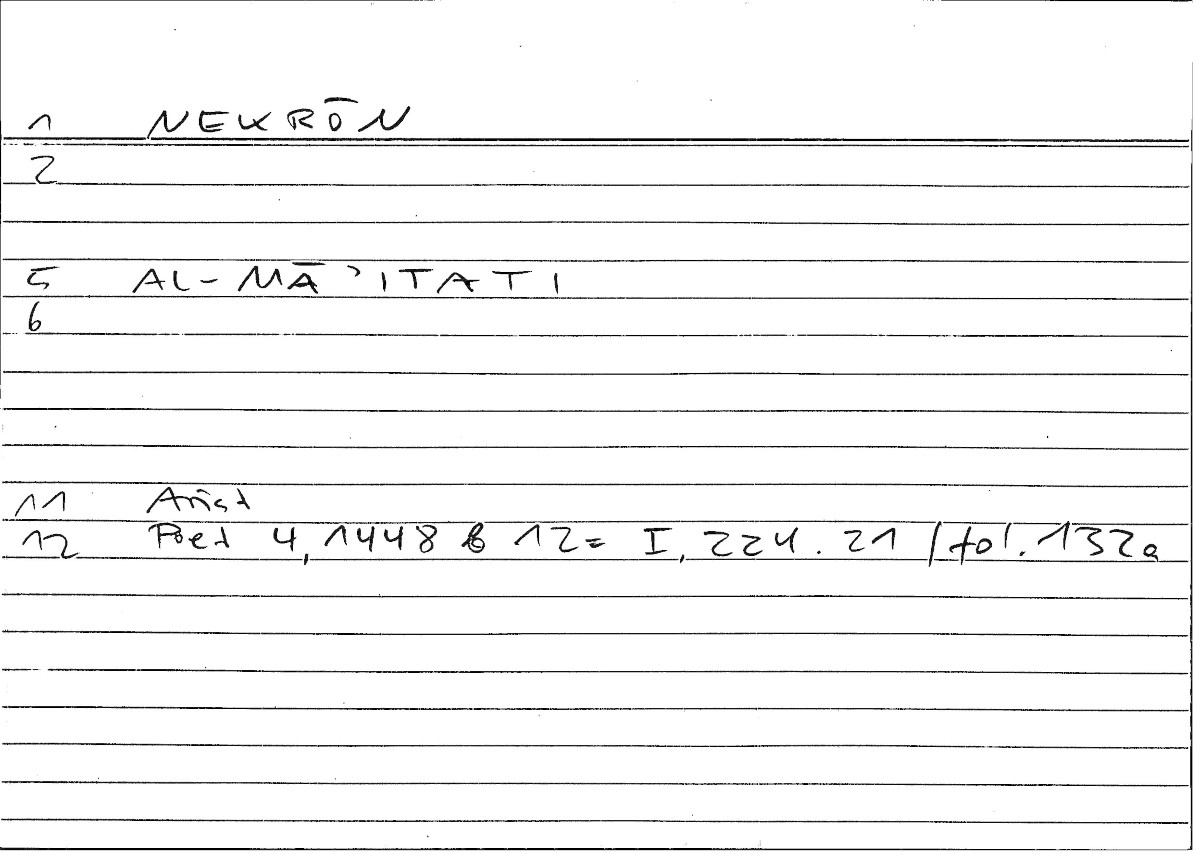 1 NEKRŌN
2
5 AL-MĀʾITATI
6
11 Arist
12 Poet 4,1448 b 12 = I, 224.21 / fol. 132a